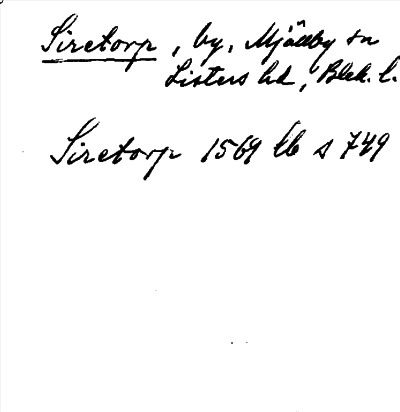 Siretorp, by, Mjällby sn
Listers hd, Blek. l.
Siretorp 1569 lb s 749